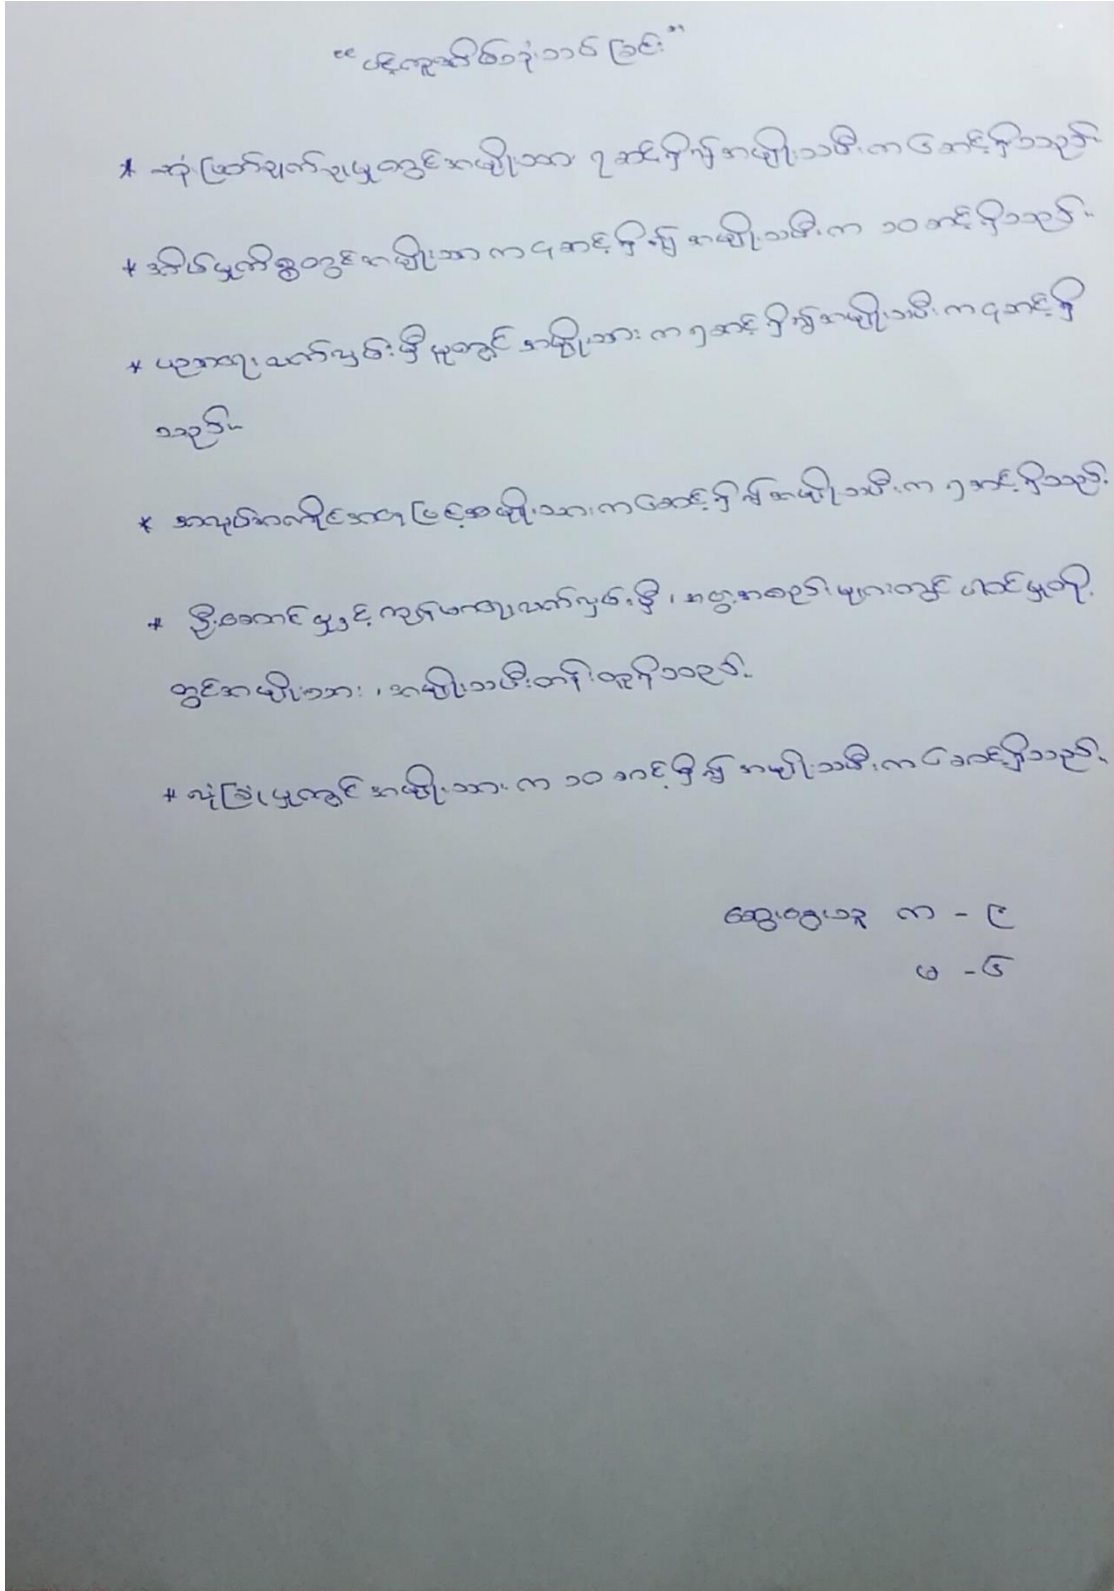 “ပင့်ကူအိမ်သုံးသပ်ခြင်း”
* ဆုံးဖြတ်ချက်ချမှုတွင်အမျိုးသား ၇ ဆင့်ရှိ၍အမျိုးသမီးက ၆ ဆင့်ရှိသည်။
* အိမ်မှုကိစ္စတွင်အမျိုးသားက ၎ဆင့်ရှိ၍ အမျိုးသမီးက ၁၀ ဆင့်ရှိသည်။
* ပညာရေးလက်လှမ်းမှီမှုတွင် အမျိုးသားက ၅ဆင့်ရှိ၍အမျိုးသမီးက ၎ဆင့်ရှိ
သည်။
* အလုပ်အကိုင်အားဖြင့်အမျိုးသားက ၆ဆင့်ရှိ၍အမျိုးသမီးက ၅ဆင့်ရှိသည်။
* ဦးဆောင်မှုနှင့်ကျန်းမာရေးလက်လှမ်းမှီ၊ အစည်းများတွင်ပါဝင်မှုတို့
တွင်အမျိုးသား၊ အမျိုးသမီးတန်းတူရှိသည်။
* လုံခြုံမှုတွင်အမျိုးသားက ၁၀ ဆင့်ရှိ၍ အမျိုးသမီးက ၆ ဆင့်ရှိသည်။
ဆွေးနွေးသူ က - ၉
မ - ၆